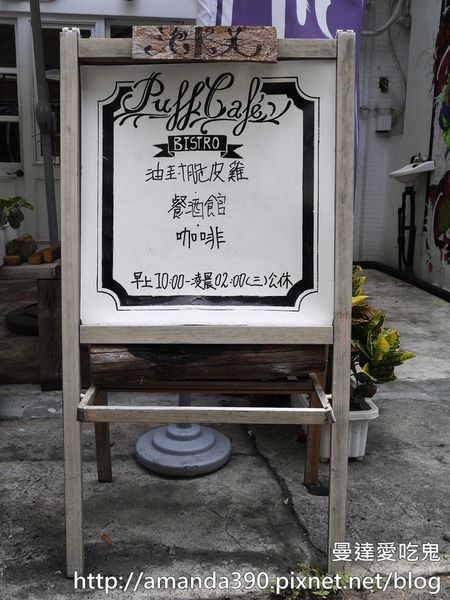 Puff Café
BISTRO
油封脆皮雞
餐酒館
咖啡
早上 10:00-凌晨02:00(三)公休
曼達愛吃鬼
http://amanda390.pixnet.net/blog